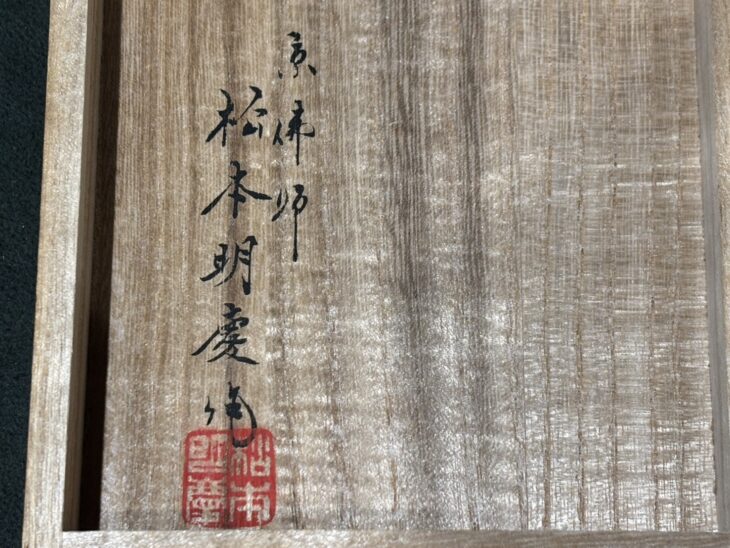 京佛师
松本明慶作
松本
明慶